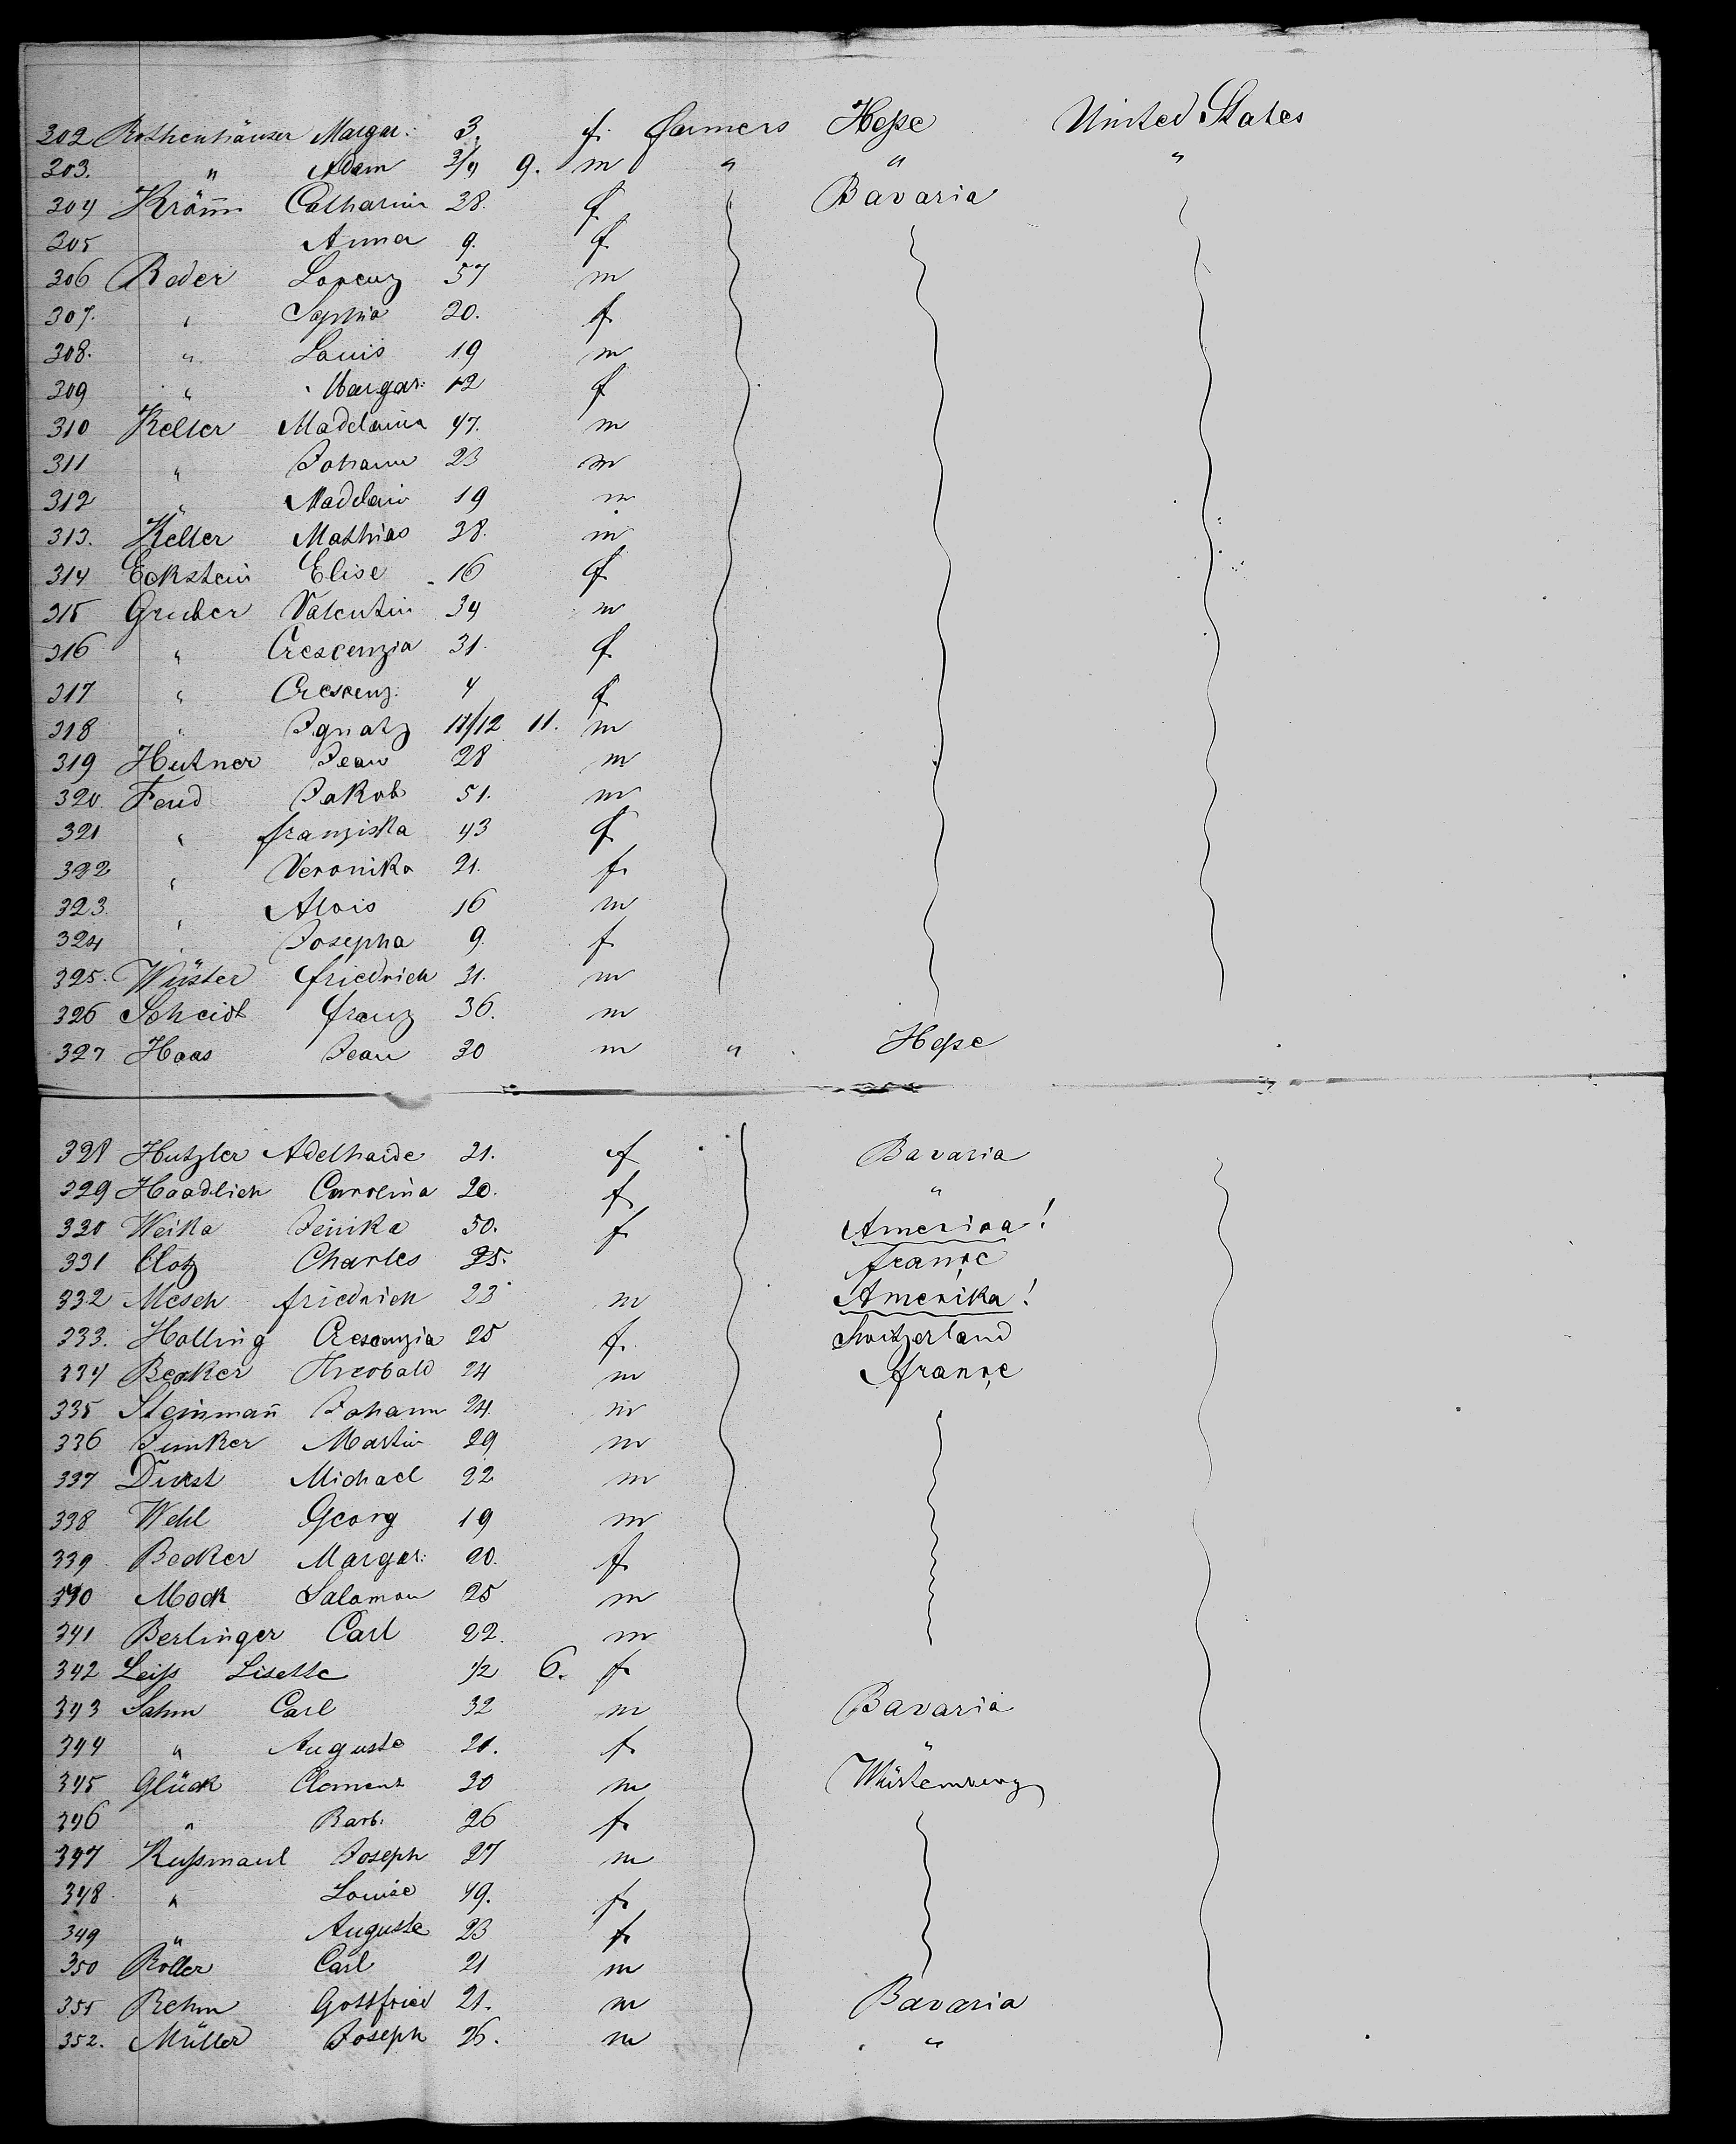 302 Rothenhäuser Margar. 3. f. farmers Heſse United States
203. " Adam 3/4 9. m " " "
304 Kräm̄ Catharina 38. f Bavaria
305 Anna 9. f
306 Roder Lorenz 57 m
307. " Sophia 20. f
308. " Louis 19 m
309 " Margar. 12 f
310 Keller Madelaina 47. m
311 " Johann 23 m
312 " Madelain 19 m
313. Keller Mathias 38. m
314 Eckstein Elise 16 f
315 Gruber Valentin 34 m
316 " Crescenzia 31. f
317 " Crescenz. 4 f
318 " Ignatz 11/12 11. m
319 Hutner Jean 28 m
320. Fend Jakob 51. m
321 " franziska 43 f
322 " Veronika 21. f.
323. " Alois 16 m
324 " Josepha 9. f
325. Wüster friedrich 31. m
326 Scheidt franz 36. m
327 Haas Jean 30 m " Heſse
328 Hutzler Adelhaide 21. f Bavaria
329 Haadlich Carolina 20. f "
330 Weika 50. f America!
331 Clotz Charles 35. france
332 Mesch friedrich 23 m Amerika!
333. Holling Crescenzia 25 f. Switzerland
334 Becker Theobald 24 m france
335 Steinman̄ Johann 24. m
336 Junker Martin 29 m
337 Durst Michael 22 m
338 Wehl Georg 19 m
339 Becker Margar. 20. f.
340 Mock Salomon 25 m
341 Berlinger Carl 22. m
342 Leiſs Lisette 1/2 6. f.
343 Sahm Carl 32 m Bavaria
344 " Auguste 21. f. "
345 Glück Clement 30 m Würtemberg
346 " Barb. 26 f.
347 Kuſsmaul Joseph 27 m
348. " Louise 49. f.
349 " Auguste 23 f.
350 Röller Carl 21 m
351 Rehm Gottfried 21. m Bavaria
352. Müller Joseph 26. m "